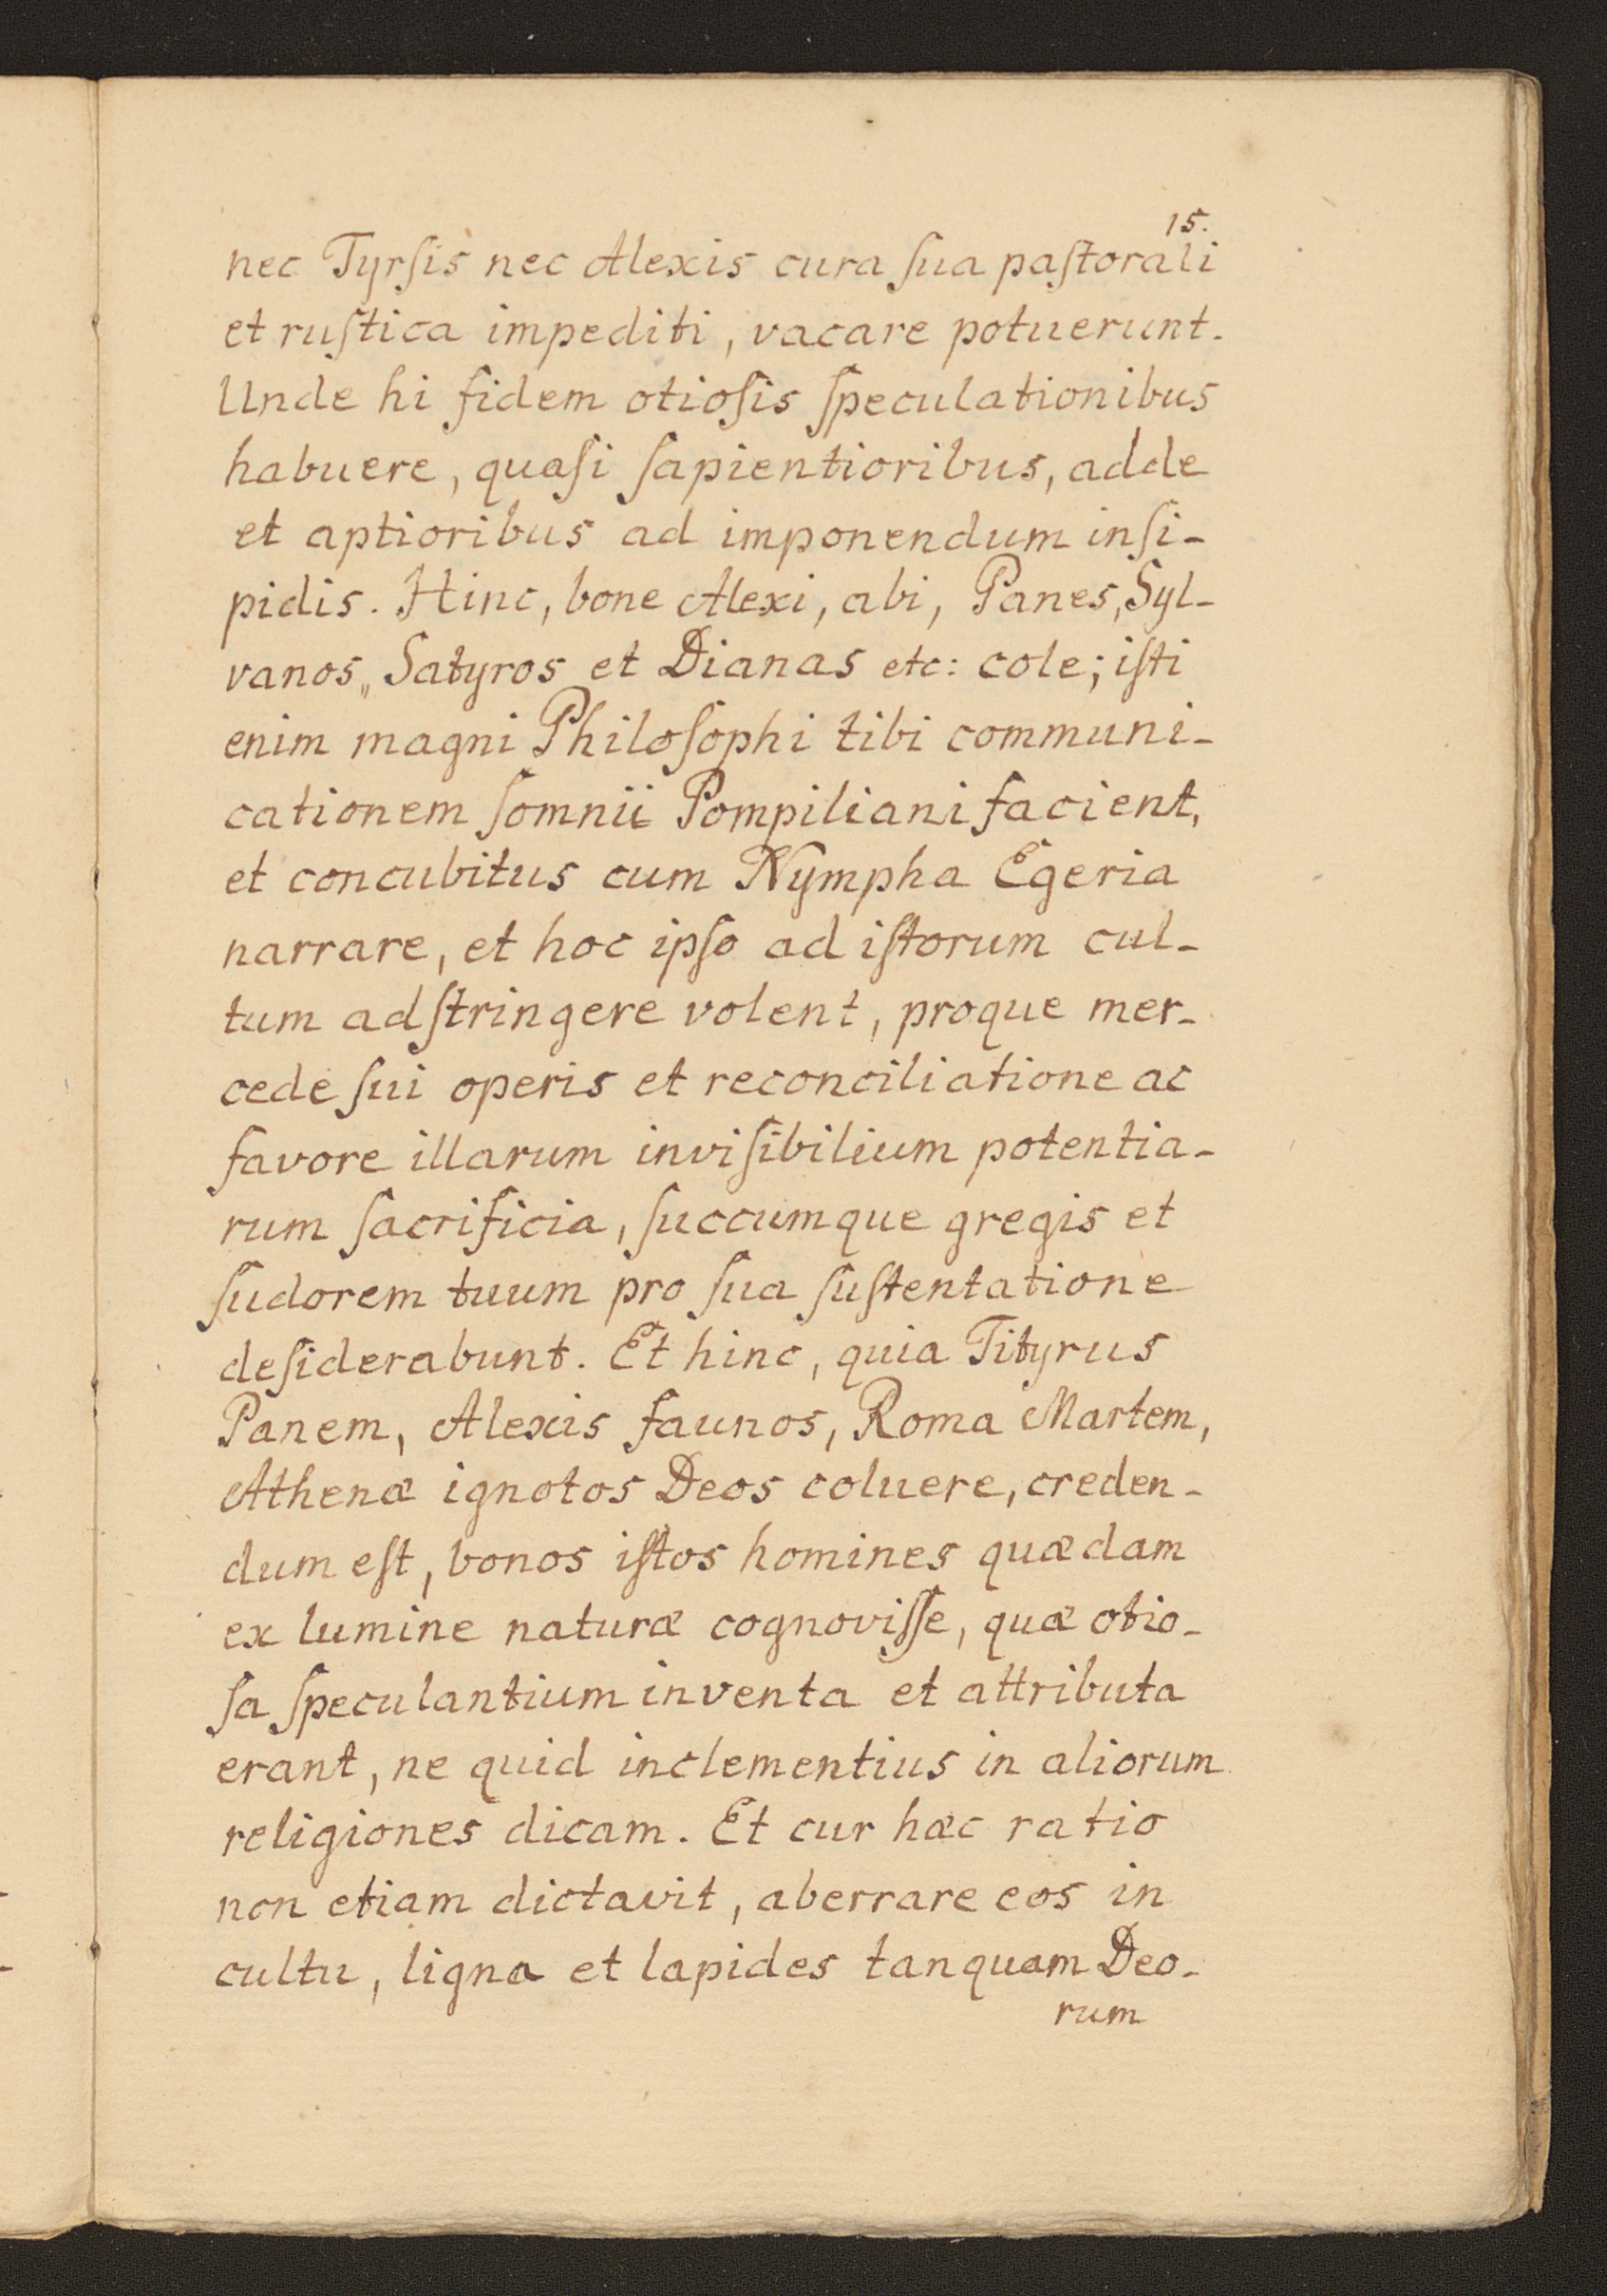 15.
nec Tyrſis nec Alexis cura ſua paſtorali
et ruſtica impediti, vacare potuerunt.
Unde hi fidem otioſis ſpeculationibus
habuere, quaſi ſapientioribus, adde
et aptioribus ad imponendum inſi-
pidis. Hinc, bone Alexi, abi, Panes, Syl-
vanos,, Satyros et Dianas etc: cole; iſti
enim magni Philoſophi tibi communi-
cationem ſomnii Pompiliani facient,
et concubitus cum Nympha Egeria
narrare, et hoc ipſo ad iſtorum cul-
tum adſtringere volent, proque mer-
cede ſui operis et reconciliatione ac
favore illarum inviſibilium potentia-
rum ſacrificia, ſuccumque gregis et
ſudorem tuum pro ſua ſuſtentatione
deſiderabunt. Et hinc, quia Tityrus
Panem, Alexis faunos, Roma Martem,
Athenæ ignotos Deos coluere, creden-
dum eſt, bonos iſtos homines quædam
ex lumine naturæ cognoviſſe, quæ otio-
ſa ſpeculantium inventa et attributa
erant, ne quid inclementius in aliorum
religiones dicam. Et cur hæc ratio
non etiam dictavit, aberrare eos in
cultu, ligna et lapides tanquam Deo-
rum